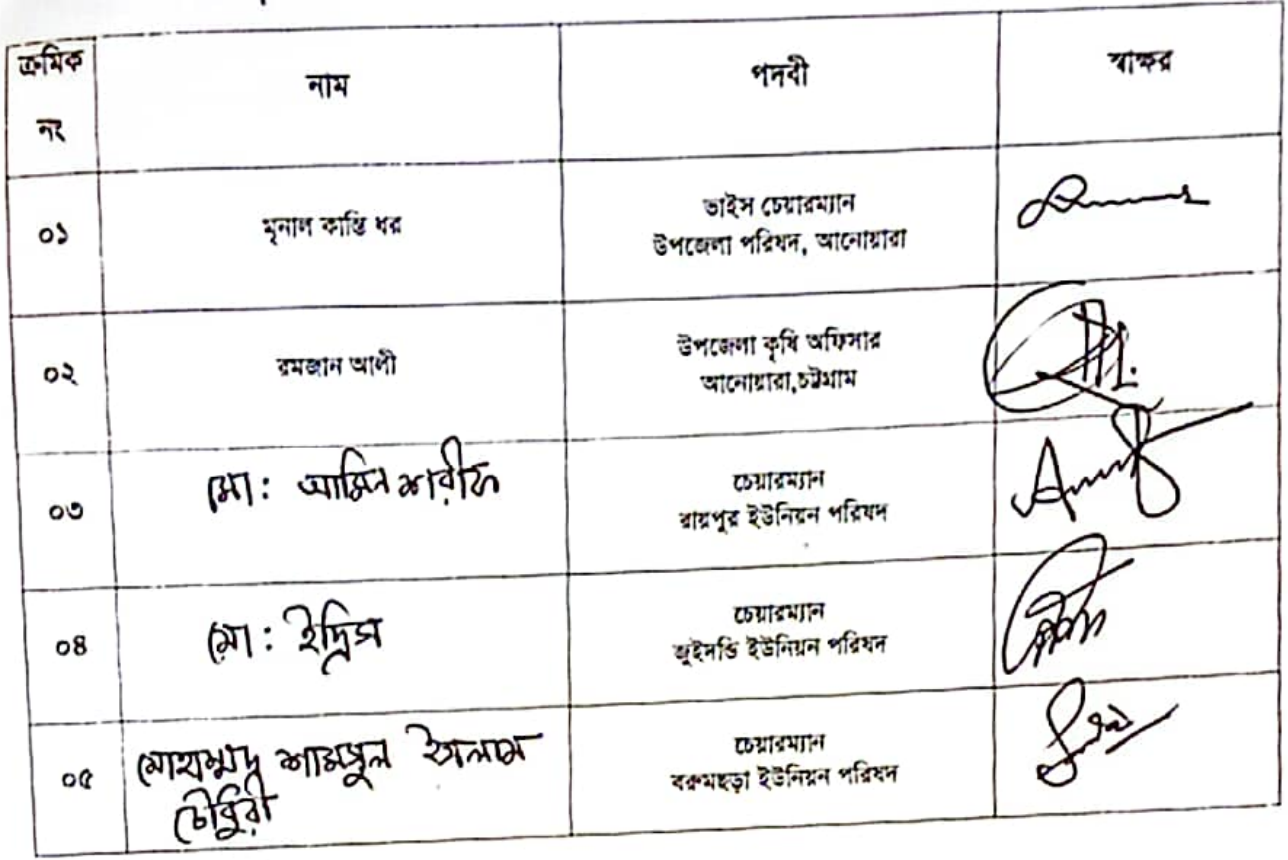 ক্রমিক নং নাম পদবী স্বাক্ষর
০১ মৃনাল কান্তি ধর ভাইস চেয়ারম্যান
উপজেলা পরিষদ, আনোয়ারা
০২ রমজান আলী উপজেলা কৃষি অফিসার
আনোয়ারা,চট্টগ্রাম
০৩ মো: আমিন শরীফ চেয়ারম্যান
রায়পুর ইউনিয়ন পরিষদ
০৪ মো: ইদ্রিস চেয়ারম্যান
জুইদন্ডি ইউনিয়ন পরিষদ
০৫ মোহাম্মদ শামসুল ইসলাম
চৌধুরী
চেয়ারম্যান
বরুমছড়া ইউনিয়ন পরিষদ